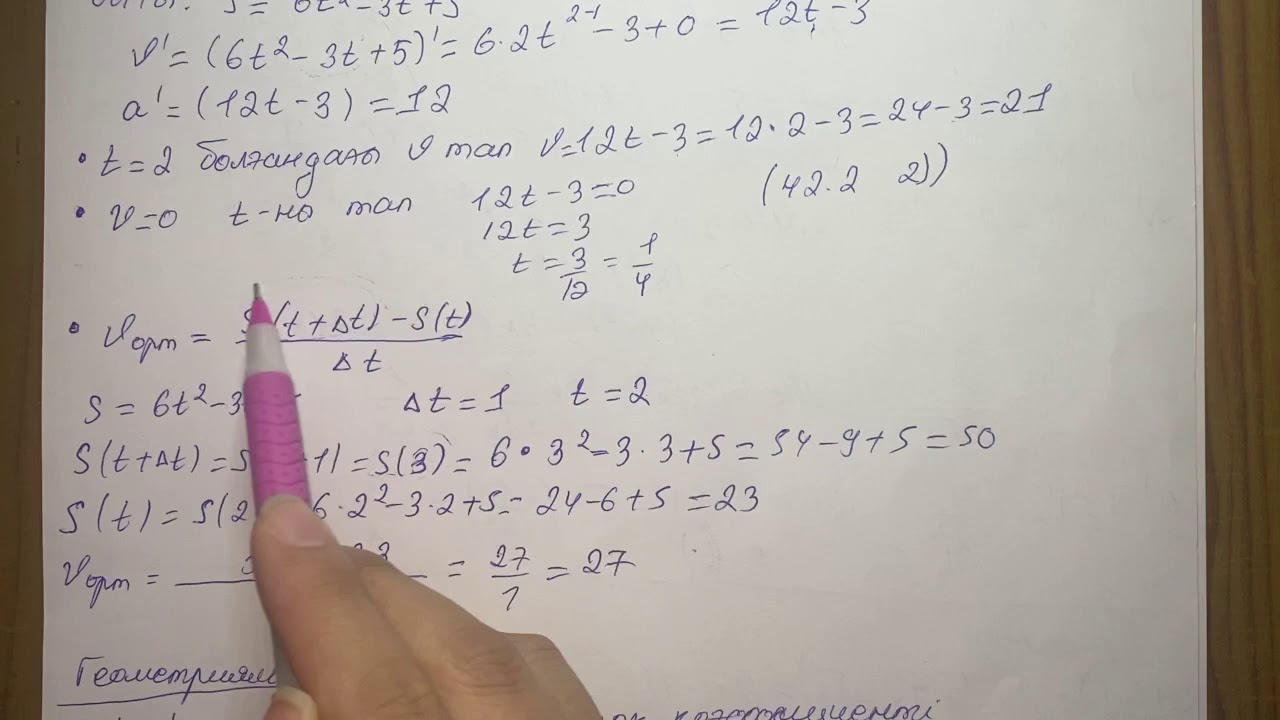 S = 6t² - 3t + 5
v' = (6t² - 3t + 5)' = 6·2t²⁻¹ - 3 + 0 = 12t - 3
a' = (12t - 3) = 12
• t = 2 болғандағы v тап v = 12t - 3 = 12·2 - 3 = 24 - 3 = 21
• v = 0 t-ны тап 12t - 3 = 0 (42.2 2))
12t = 3
t = 3/12 = 1/4
• vорт = S(t + Δt) - S(t) / Δt
S = 6t² - 3 Δt = 1 t = 2
S(t + Δt) = S 1) = S(3) = 6·3² - 3·3 + 5 = 54 - 9 + 5 = 50
S(t) = S(2 6·2² - 3·2 + 5 = 24 - 6 + 5 = 23
vорт = = 27/1 = 27
Геометриялы